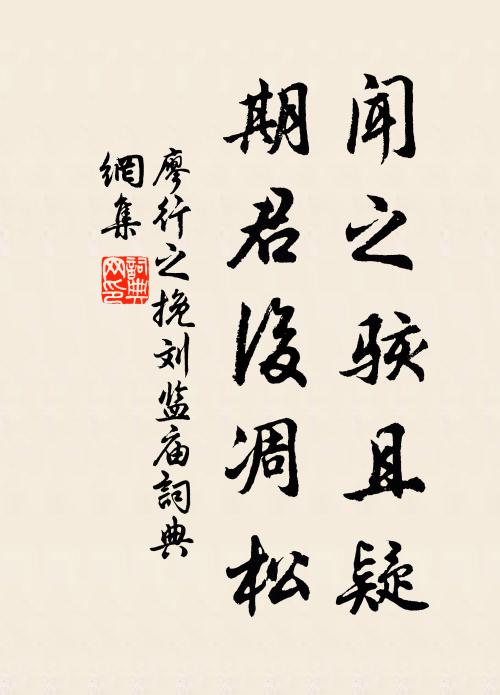 闻之骇且疑
期君后凋松
廖行之挽刘监庙詞典
網集
詞典网印